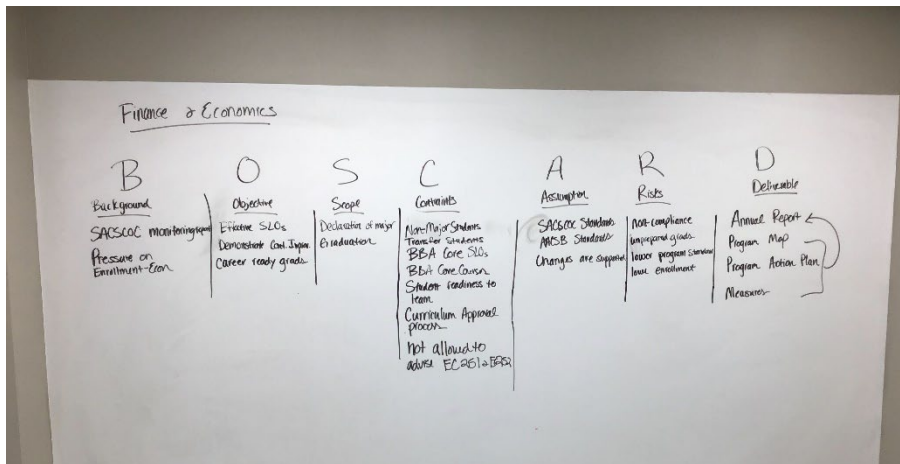 Finance & Economics
B
Background
SACSCOC monitoring report
Pressure on
Enrollment-Econ
O
Objective
Effective SLOs
Demonstrate Cont. Improv.
Career ready grads
S
Scope
Declaration of major
Graduation
C
Contraints
Non-Major Students
Transfer Students
BBA Core SLOs
BBA Core Courses
Student readiness to
learn
Curriculum Approval
process
not allowed to
advise EC251 & E252
A
Assumption
SACSCOC Standards
AACSB Standards
Changes are supported
R
Risks
non-compliance
unprepared grads
lower program standards
low enrollment
D
Deliverable
Annual Report
Program Map
Program Action Plan
Measures